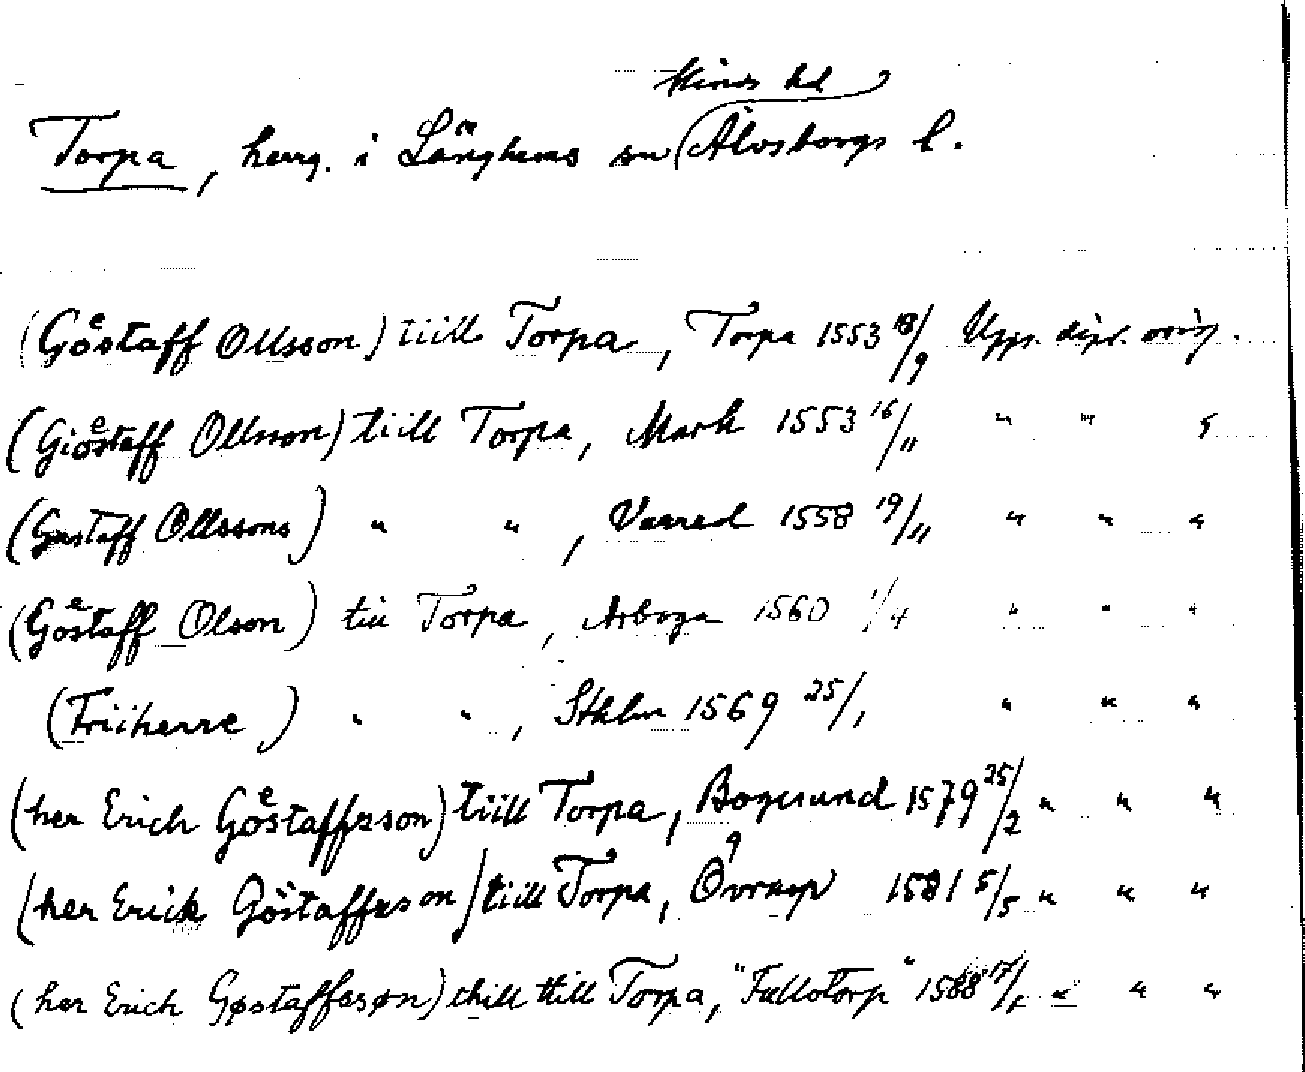 Kinds hd
Torpa, herrg. i Länghems sn Älvsborgs l.
(Göstaff Ollsson) tiill Torpa, Torpa 1553 18/9 Upps. dipl. orig.
(Giöstaff Ollsson) tiill Torpa, Mark 1553 16/11 " " "
(Gustaff Ollssons) " " , Varred 1558 19/11 " " "
(Göstaff Olson) till Torpa, Arboga 1560 1/4 " " "
(Friiherre) " " , Sthlm 1569 25/1 " " "
(her Erich Göstaffsson) tiill Torpa, Bogesund 1579 25/2 " " "
(her Erick Göstaffsson) tiill Torpa, 1581 5/5 " " "
(her Erich Gøstaffssøn) thill Torpa, "Fullotorp" 1588 " " "